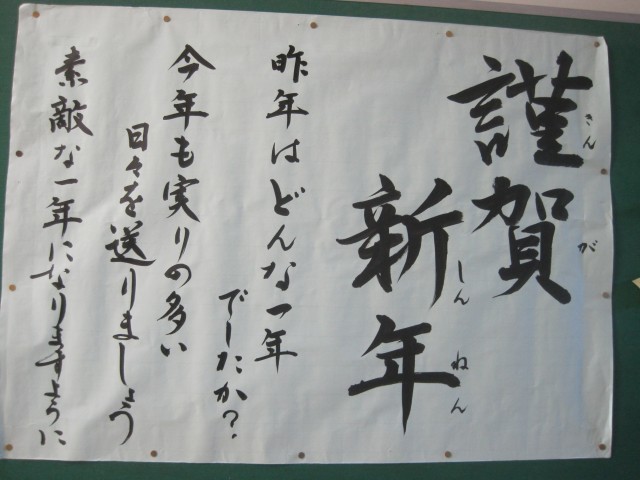 謹賀
きんが
新年
しんねん
昨年はどんな一年
でしたか?
今年も実りの多い
日々を送りましょう
素敵な一年になりますように